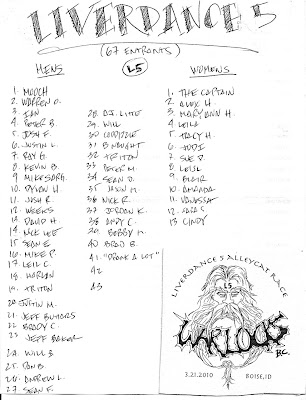 LIVERDANCE 5
(67 ENTRANTS)
MENS
L5
WOMENS
1. MOOCH
2. WARREN O.
3. IAN
4. PETER B.
5. JOSH F.
6. JUSTIN L.
7. RAY G.
8. KEVIN B.
9. MIKESORG.
10. DEVON H.
11. JOSH R.
12. WEEKS
13. DAVID H.
14. NICK LEE
15. SEAN E.
16. MIKE P.
17. LEIL C.
18. HARLAN
19. TRITON
20. JUSTIN M.
21. JEFF BUTORS
22. BRODY C.
23. JEFF BAKER
24. WILL B
25. JON B.
26. ANDREW L.
27. SEAN F.
28. D.J. LITE
29. WILL
30.
31. B. NAUGHT
32. TRITON
33. PETER M.
34. SEAN O.
35. JASON M.
36. NICK R.
37. JORDAN K.
38. ANDY C.
39. BOBBY M.
40. BRAD B.
41. "DRANK A LOT"
42
43
1. THE CAPTAIN
2. ALEX H
3. MARYANN H.
4. LEILA
5. TRACY H.
6. JODI
7. SUE D.
8. LEISL
9. BLAIR
10. AMANDA
11. VANESSA
12. SARA S.
13. CINDY
LIVERDANCE 5 ALLEYCAT RACE
L5
WARLOCKS
B.C.
3.21.2010 BOISE, ID